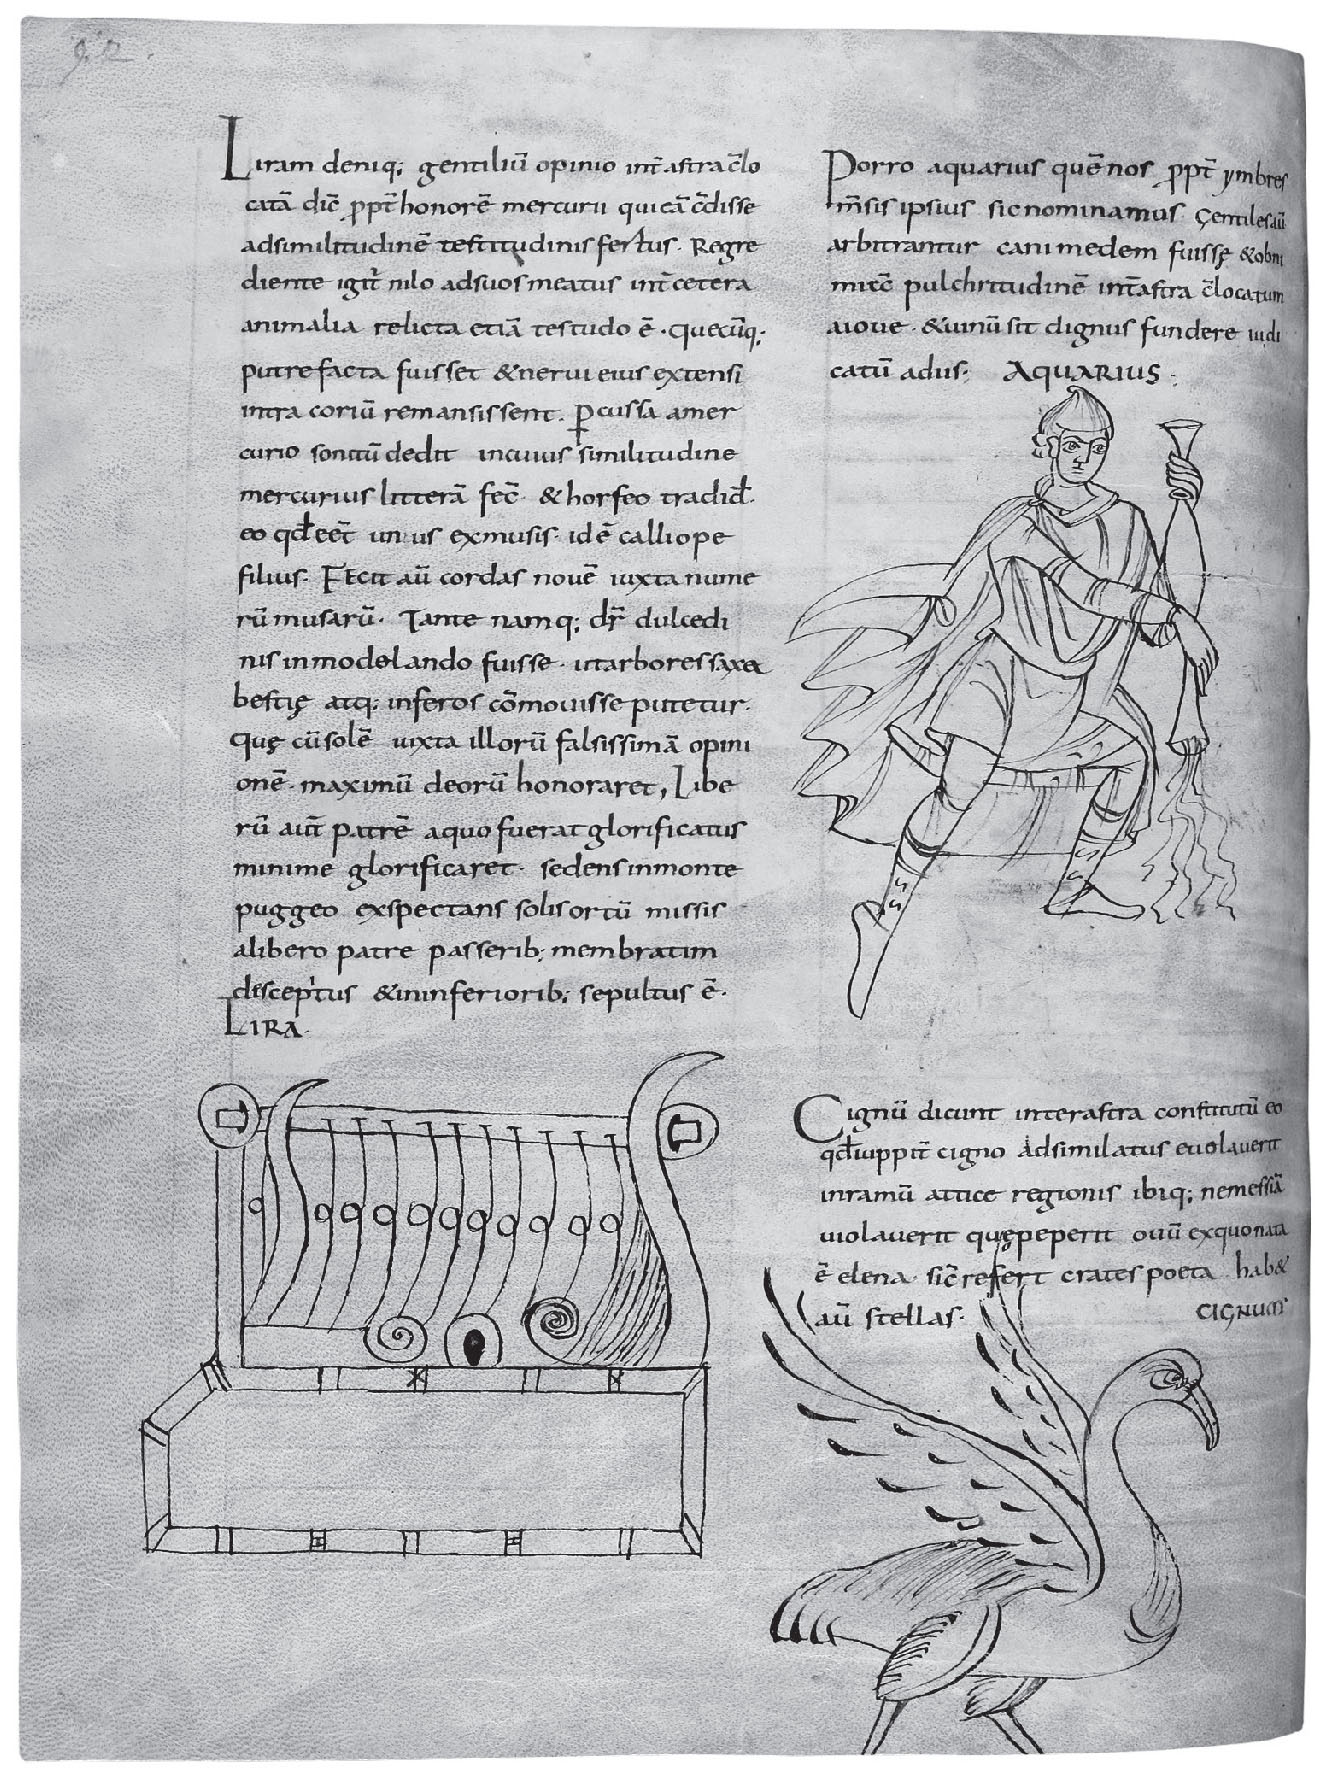 92.
Liram deniq; gentiliū opinio int̄ astra c̄lo
catā dic̄ ꝓpt̄ honorē mercurii qui eā c̄disse
ad similitudinē testitudinis fertus. Regre
diente igit̄ nilo ad suos meatus int̄ cetera
animalia relicta etiā testudo ē. quecūq;
putrefacta fuisset & nervi eius extensi
intra coriū remansissent. ꝑcussa a mer
curio sonitū dedit in cuius similitudine
mercurius litterā fec̄ & horfeo tradid̄.
eo qd̄ eēt unius ex musis. id ē calliope
filius. Fecit aū cordas novē iuxta nume
rū musarū. Tante namq; dr̄ dulcedi
nis in modolando fuisse. ut arbores saxa
bestię atq; inferos cōmovisse putetur.
quę cū solē iuxta illorū falsissimā opini
onē. maximū deorū honoraret, Libe
rū aut̄ patrē a quo fuerat glorificatus
minime glorificaret. sedens in monte
puggeo exspectans solis ortū missis
a libero patre passerib; membratim
disceptus & in inferiorib; sepultus ē.
LIRA.
Porro aquarius quē nos ꝓpt̄ ymbres
m̄sis ipsius sic nominamus gentiles aū
arbitrantur canimedem fuisse & ob ni
miā pulchritudinē int̄ astra c̄locatum
a iove. & vinū sit dignus fundere iudi
catū adus; AQUARIUS.
Cignū dicunt inter astra constitutū eo
qd̄ iuppit̄ cigno adsimilatus evolaverit
in ramū attice regionis ibiq; nemessiā
violaverit quę peperit ovū ex quo nata
ē elena. sic̄ refert crates poeta hab&
aū stellas.
CIGNUM